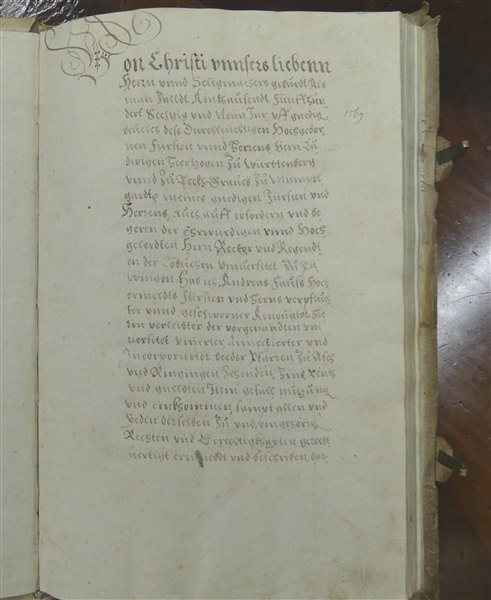 Von Christi vnnsers liebenn
Herrn vnnd Seligmachers geburdt Als
man Zalldt Ainthausendt Fünffhun
dert Sechtzig vnd Neun Jar, vff gnedig
beuelch des Durchleuchtigen Hochgebor
nen Fürsten vnnd Herrens Hern Lu
dwigen Hertzogen Zu Württemberg
vnnd Zu Teckh Grauen Zu Mümppel
gardt meines gnedigen Fürsten vnd
Herrens, Auch auff erfordern vnd be
geren der Ehrwürdigen vnnd Hoch
gelerdten Hern Rector vnd Regendt
en der Löblichen Vniuersitet Zu Tü
wingen Hab ich Andreas Hoch
ermeldts Fürsten vnd Herns verpflich
ter vnnd geschworner
der vorgenandten vni
uersitet vnierter Annectierter vnd
Incorporierter beider Pfarren Zu Asch
vnd Ringingen Zehenden, Zins, Rent
vnd güeldten Item gefäll nutzung
vnd einkhommen sampt allen vnd
Yeden derselben Zu vnd eingehörig
Rechten vnd Gerechtigkhayten
uertigt ernewdt vnd beschriben
1569